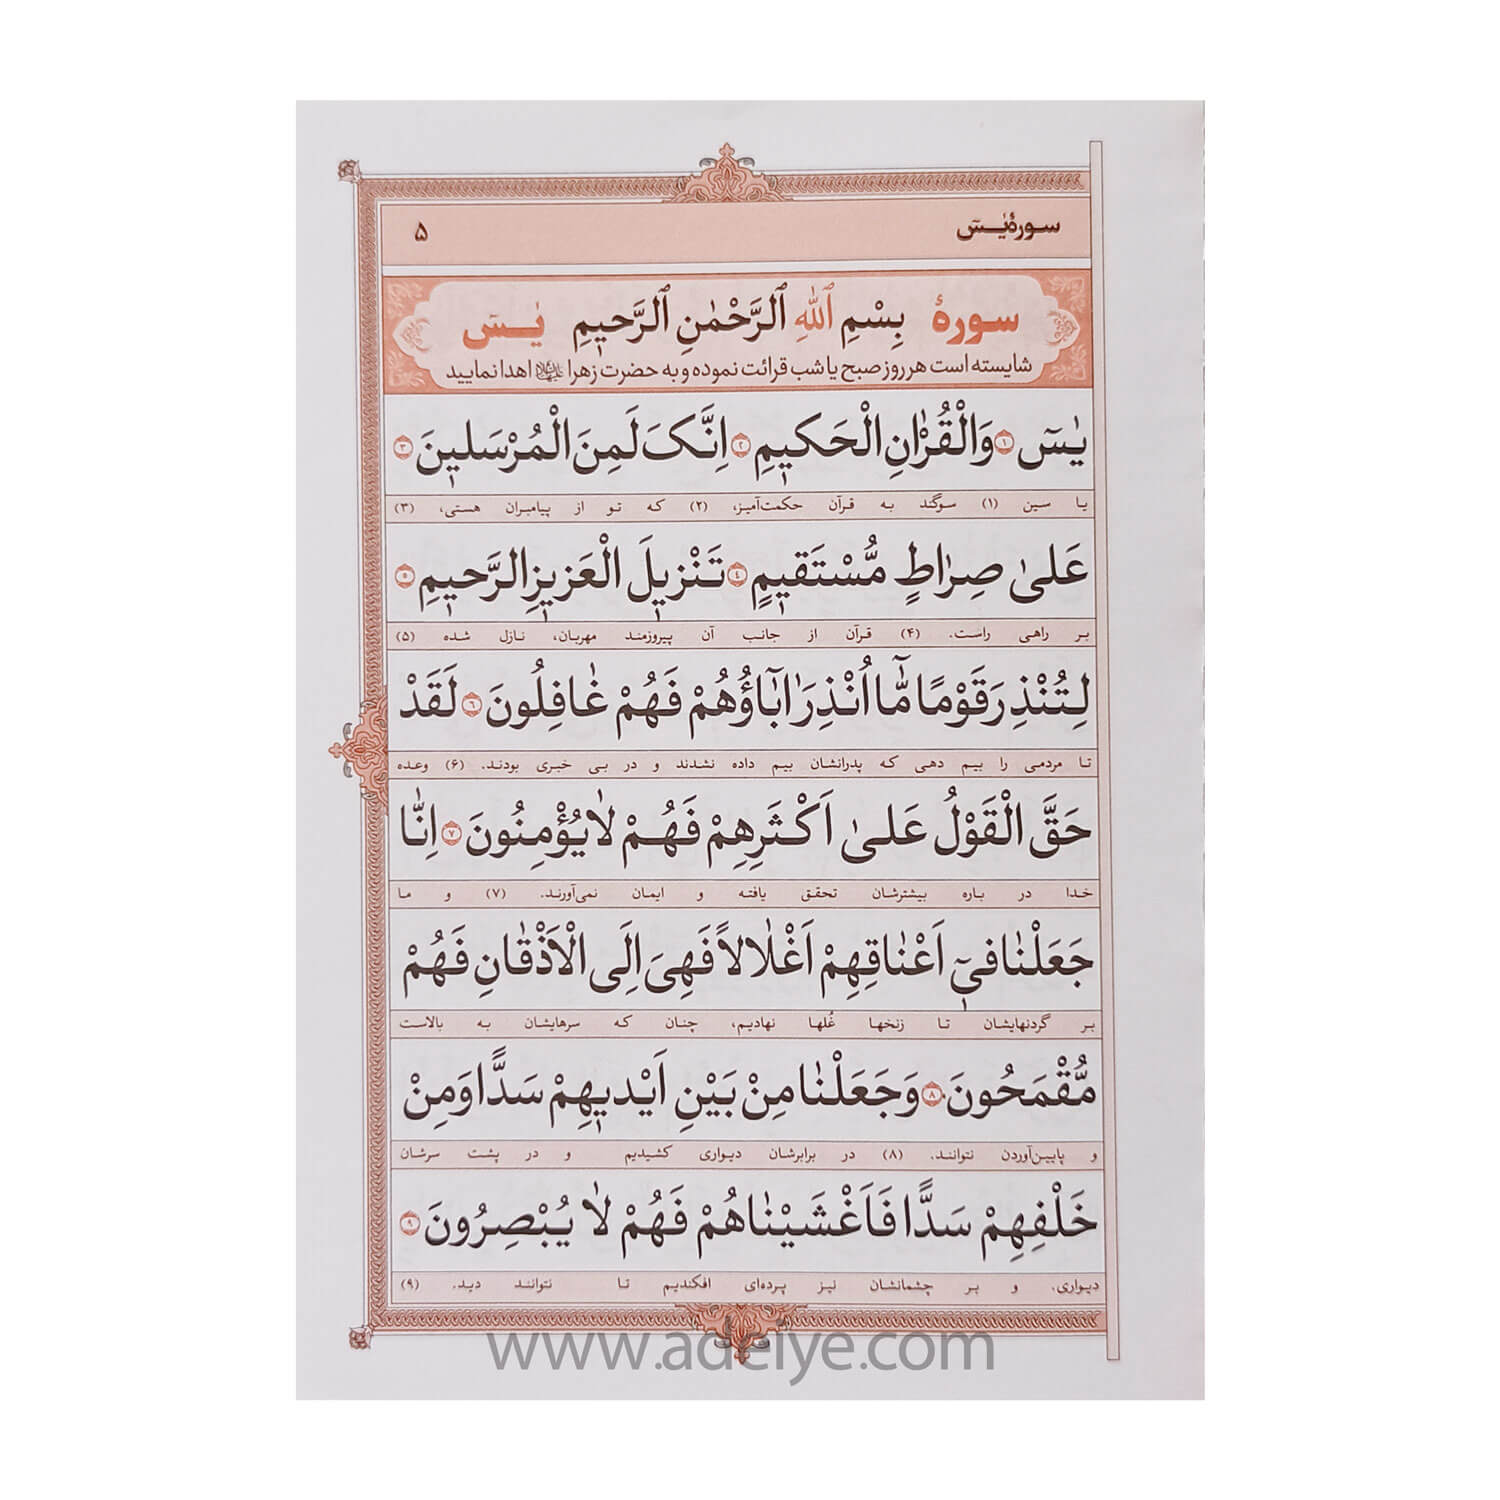 سورهٔ یٰسٓ ۵
سورهٔ بِسْمِ ٱللّٰهِ ٱلرَّحْمٰنِ ٱلرَّحیٖمِ یٰسٓ
شایسته است هر روز صبح یا شب قرائت نموده و به حضرت زهرا علیهاالسلام اهدا نمایید
یٰسٓ ﴿١﴾ وَالْقُرْاٰنِ الْحَکیٖمِ ﴿٢﴾ اِنَّکَ لَمِنَ الْمُرْسَلیٖنَ ﴿٣﴾
یا سین (۱) سوگند به قرآن حکمت‌آمیز، (۲) که تو از پیامبران هستی، (۳)
عَلیٰ صِرٰاطٍ مُّسْتَقیٖمٍ ﴿٤﴾ تَنْزیٖلَ الْعَزیٖزِ الرَّحیٖمِ ﴿٥﴾
بر راهی راست. (۴) قرآن از جانب آن پیروزمند مهربان، نازل شده (۵)
لِتُنْذِرَ قَوْمًا مّٰٓا اُنْذِرَ اٰبٰٓاؤُهُمْ فَهُمْ غٰافِلُونَ ﴿٦﴾ لَقَدْ
تا مردمی را بیم دهی که پدرانشان بیم داده نشدند و در بی خبری بودند. (۶) وعده
حَقَّ الْقَوْلُ عَلیٰ اَکْثَرِهِمْ فَهُمْ لٰا یُؤْمِنُونَ ﴿٧﴾ اِنّٰا
خدا در باره بیشترشان تحقق یافته و ایمان نمی‌آورند. (۷) و ما
جَعَلْنٰا فیٖٓ اَعْنٰاقِهِمْ اَغْلٰالاً فَهِیَ اِلَی الْاَذْقٰانِ فَهُمْ
بر گردنهایشان تا زنخها غُلها نهادیم، چنان که سرهایشان به بالاست
مُّقْمَحُونَ ﴿٨﴾ وَ جَعَلْنٰا مِنْ بَیْنِ اَیْدیٖهِمْ سَدًّا وَ مِنْ
و پایین‌آوردن نتوانند. (۸) در برابرشان دیواری کشیدیم و در پشت سرشان
خَلْفِهِمْ سَدًّا فَاَغْشَیْنٰاهُمْ فَهُمْ لٰا یُبْصِرُونَ ﴿٩﴾
دیواری. و بر چشمانشان نیز پرده‌ای افکندیم تا نتوانند دید. (۹)
www.adeiye.com